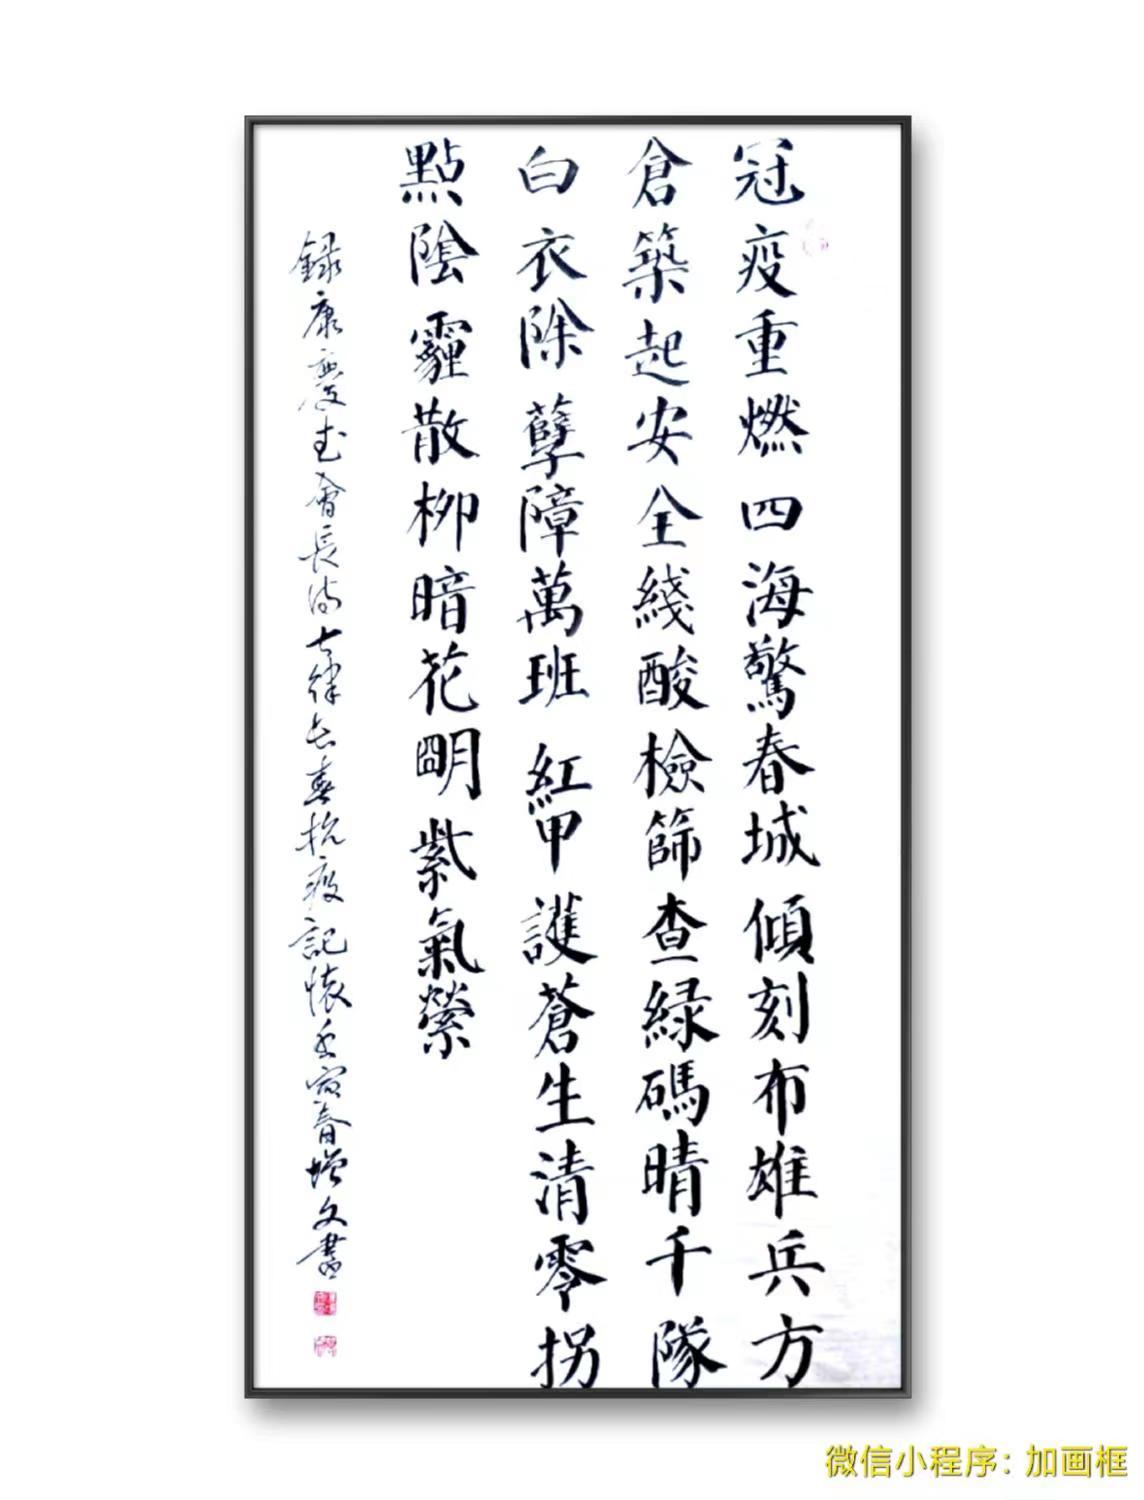 冠疫重燃四海驚春城傾刻布雄兵方
倉築起安全綫酸檢篩查緑碼晴千隊
白衣除孽障萬班紅甲護蒼生清零拐
點陰霾散柳暗花朙紫氣縈
録康慶武會長詩七律長春抗疫記懷壬寅春增文書
微信小程序：加画框